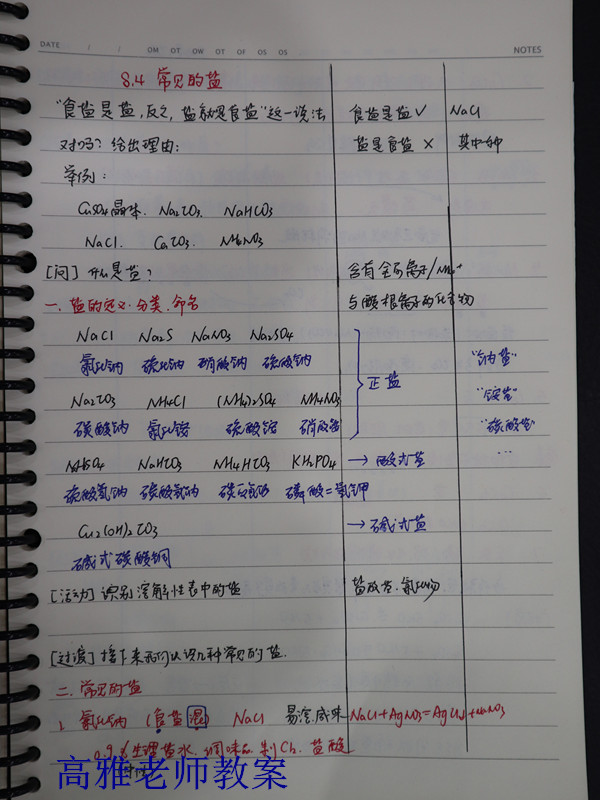 DATE / / OM OT OW OT OF OS OS NOTES
8.4 常见的盐
"食盐是盐,反之,盐就是食盐"这一说法 食盐是盐√ NaCl
对吗?给出理由: 盐是食盐× 其中一种
举例:
CuSO4晶体. Na2CO3. NaHCO3
NaCl. CaCO3. NH4NO3
[问] 什么是盐? 含有金属离子/NH4+
一. 盐的定义.分类.命名 与酸根离子的化合物
NaCl Na2S NaNO3 Na2SO4
氯化钠 硫化钠 硝酸钠 硫酸钠 "钠盐"
正盐
Na2CO3 NH4Cl (NH4)2SO4 NH4NO3 "铵盐"
碳酸钠 氯化铵 硫酸铵 硝酸铵 "硫酸盐"
NaHSO4 NaHCO3 NH4HCO3 KH2PO4 → 酸式盐 ...
硫酸氢钠 碳酸氢钠 碳酸氢铵 磷酸二氢钾
Cu2(OH)2CO3 → 碱式盐
碱式碳酸铜
[活动] 识别溶解性表中的盐 盐酸盐.氯化物
[过渡] 接下来我们认识几种常见的盐.
二. 常见的盐
1. 氯化钠 (食盐 混) NaCl 易溶.咸味 NaCl+AgNO3=AgCl↓+NaNO3
0.9%生理盐水. 调味品 制Cl2. 盐酸
高雅老师教案